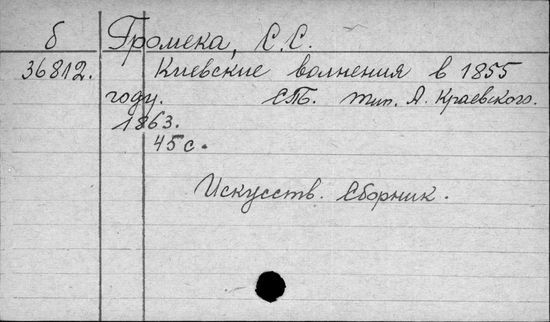 б Громека, С.С.
36812. Киевские волнения в 1855
году. СПб. тип. А. Краевского.
1863.
45 с.
Искусств. Сборник.